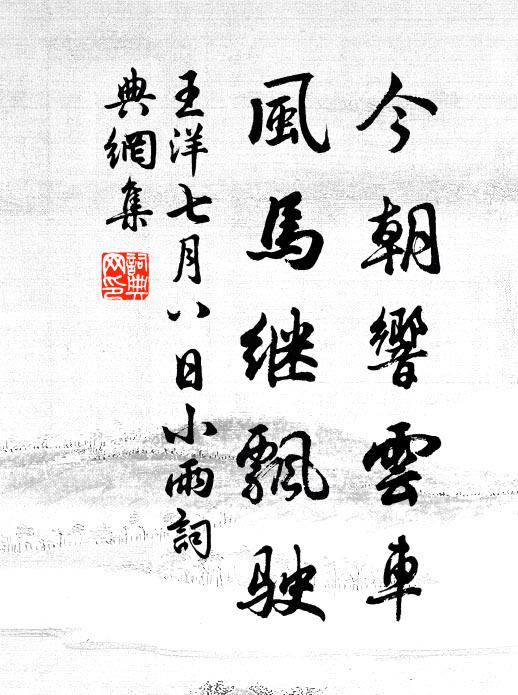 今朝響雲車
風馬继飄駛
王洋七月八日小雨詞
典網集
詞典網印